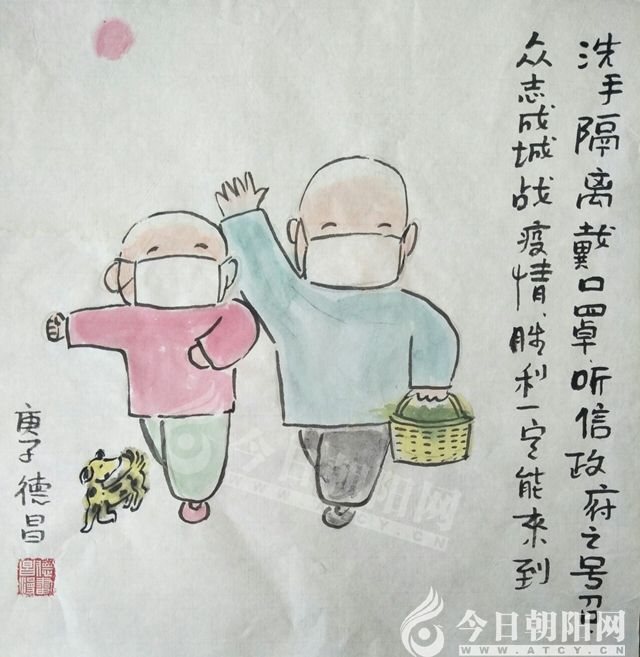 洗手隔离戴口罩、听信政府之号召、
众志成城战疫情、胜利一定能来到
庚子德昌
今日朝阳网
今日朝阳网
WWW.ATCY.CN